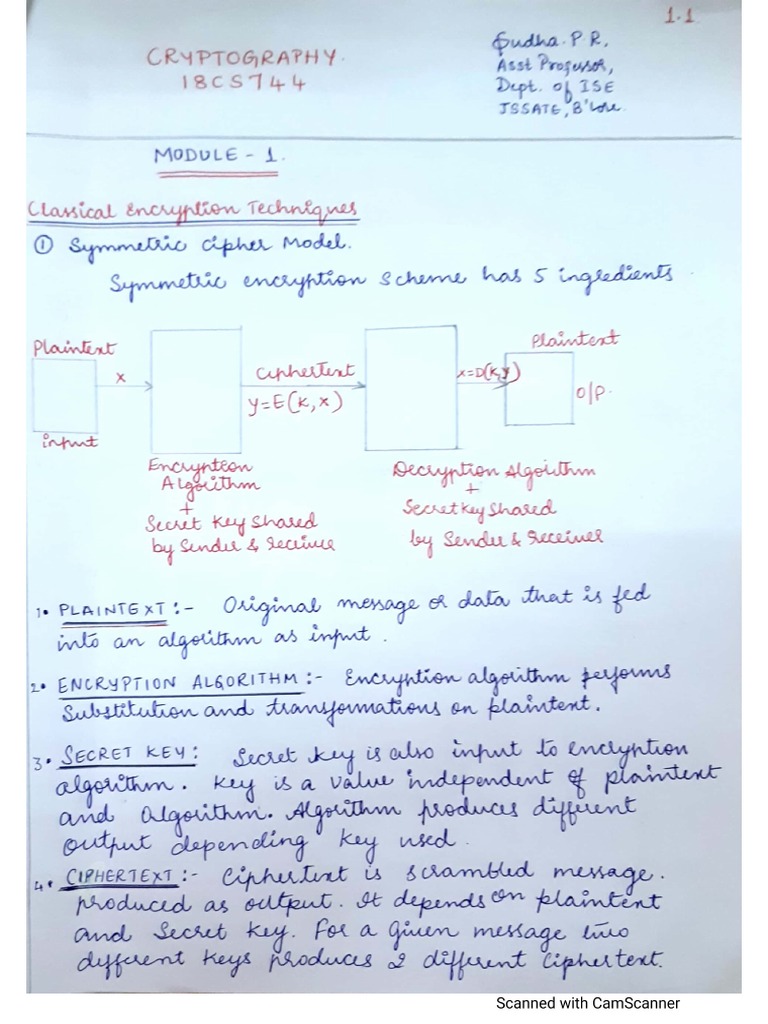 1.1
CRYPTOGRAPHY.
18CS744
Sudha. P. R,
Asst Professor,
Dept. of ISE
JSSATE, B'lore.
MODULE - 1.
Classical Encryption Techniques
① Symmetric Cipher Model.
Symmetric encryption scheme has 5 ingredients
Plaintext
x
input
Ciphertext
y=E(K,x)
x=D(K,y)
Plaintext
O/P.
Encryption
Algorithm
+
Secret Key Shared
by Sender & receiver
Decryption Algorithm
+
Secret Key Shared
by Sender & Receiver
1. PLAINTEXT :- Original message or data that is fed
into an algorithm as input.
2. ENCRYPTION ALGORITHM :- Encryption algorithm performs
Substitution and transformations on plaintext.
3. SECRET KEY : Secret key is also input to encryption
algorithm. Key is a value independent of plaintext
and Algorithm. Algorithm produces different
output depending key used.
4. CIPHERTEXT :- Ciphertext is scrambled message.
produced as output. It depends on plaintext
and Secret Key. For a given message two
different keys produces 2 different Ciphertext.
Scanned with CamScanner